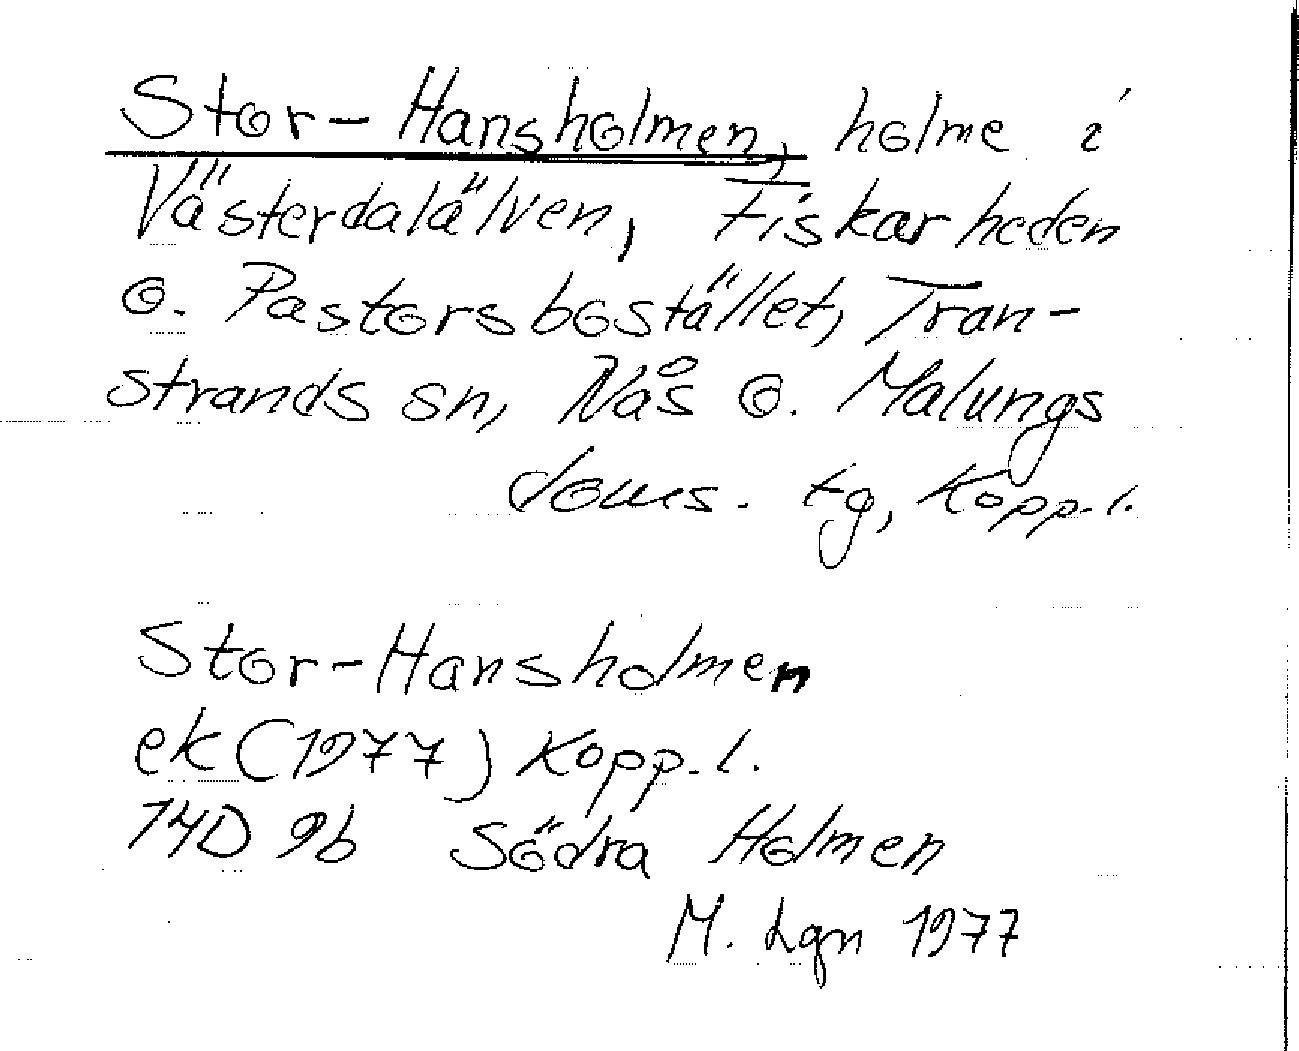 Stor-Hansholmen, holme i
Västerdalälven, Fiskarheden
o. Pastorsbostället, Tran-
strands sn, Nås o. Malungs
doms. tg, Kopp. l.
Stor-Hansholmen
ek (1977) Kopp. l.
14D 9b Södra Holmen
M. Lgn 1977